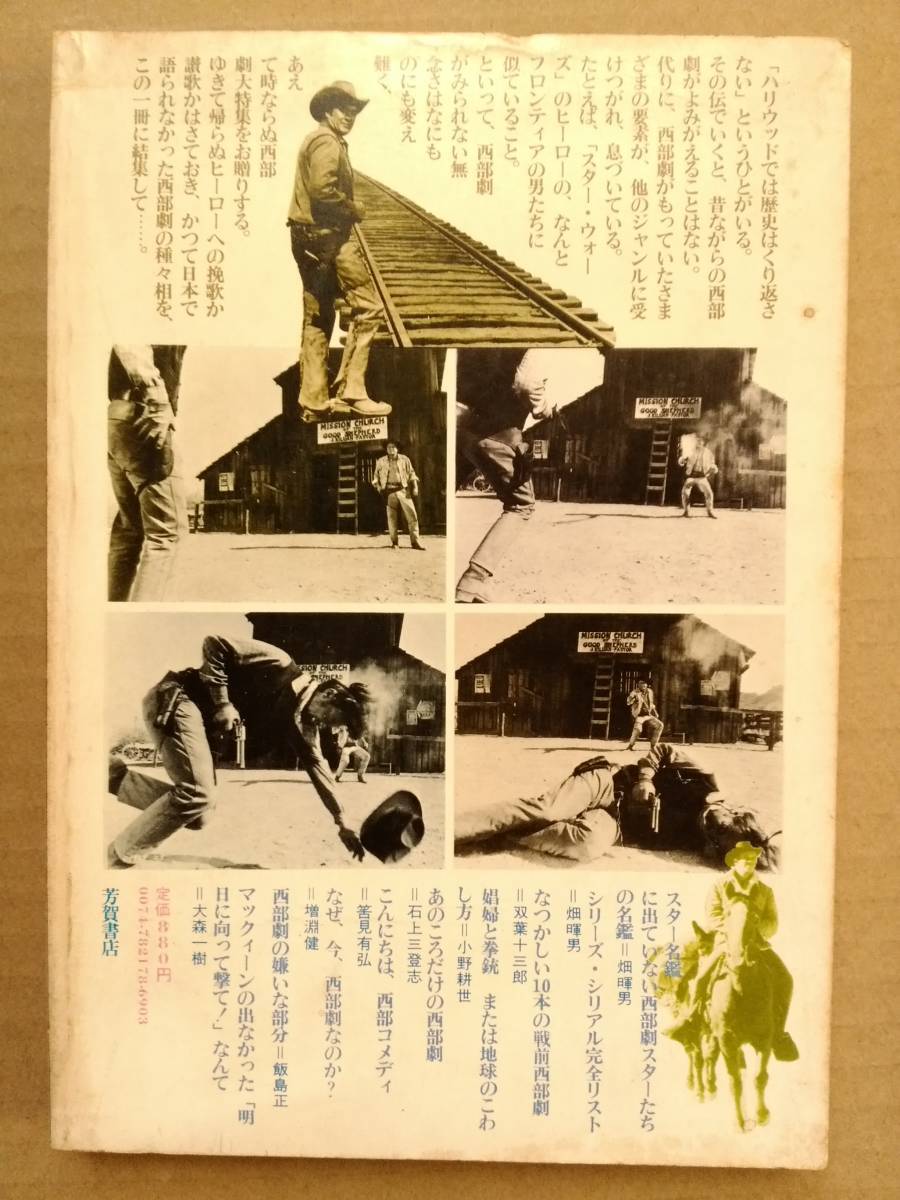 「ハリウッドでは歴史はくり返さ
ない」というひとがいる。
その伝でいくと、昔ながらの西部
劇がよみがえることはない。
代りに、西部劇がもっていたさま
ざまの要素が、他のジャンルに受
けつがれ、息づいている。
たとえば、「スター・ウォー
ズ」のヒーローの、なんと
フロンティアの男たちに
似ていること。
といって、西部劇
がみられない無
念さはなにも
のにも変え
難く、
あえ
て時ならぬ西部
劇大特集をお贈りする。
ゆきて帰らぬヒーローへの挽歌か
讃歌かはさておき、かつて日本で
語られなかった西部劇の種々相を、
この一冊に結集して……。
MISSION CHURCH
OF THE
GOOD SHEPHERD
MISSION CHURCH
OF THE
GOOD SHEPHERD
MISSION CHURCH
MISSION CHURCH
OF THE
GOOD SHEPHERD
スター名鑑
に出ていない西部劇スターたち
の名鑑＝畑暉男
シリーズ・シリアル完全リスト
＝畑暉男
なつかしい10本の戦前西部劇
＝双葉十三郎
娼婦と拳銃　または地球のこわ
し方＝小野耕世
あのころだけの西部劇
＝石上三登志
こんにちは、西部コメディ
＝筈見有弘
なぜ、今、西部劇なのか？
＝増淵健
西部劇の嫌いな部分＝飯島正
マックィーンの出なかった「明
日に向って撃て！」なんて
＝大森一樹
定価８８０円
0074-782178-6903
芳賀書店